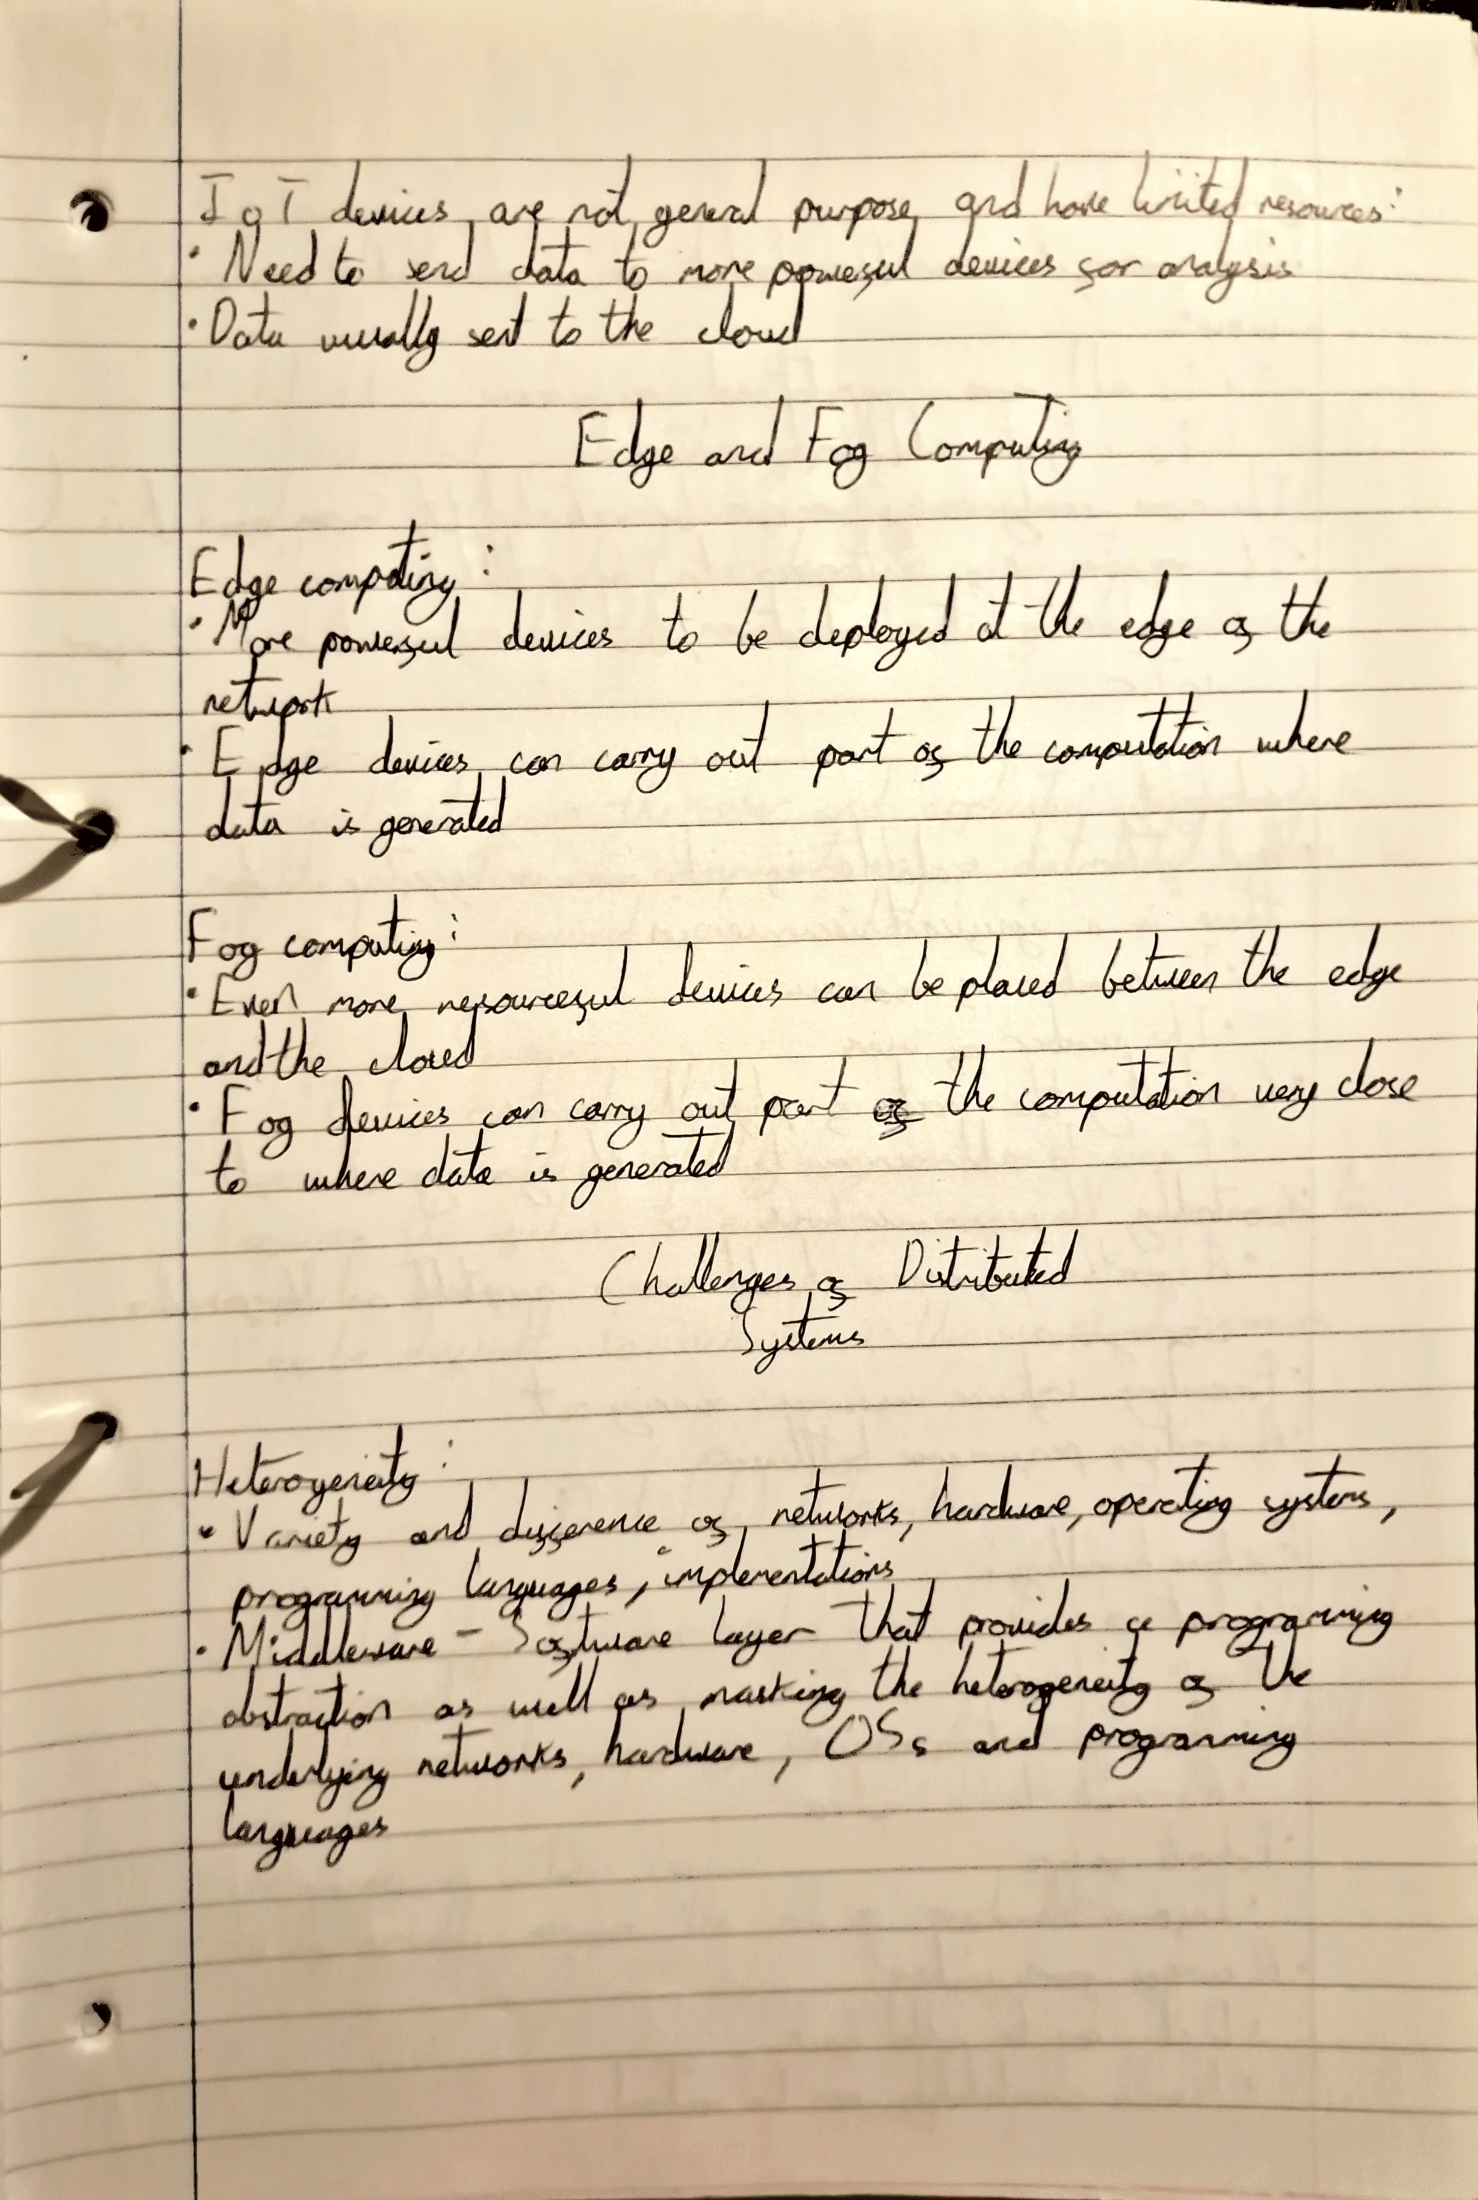 IoT devices are not general purpose and have limited resources:
• Need to send data to more powerful devices for analysis
• Data usually sent to the cloud
Edge and Fog Computing
Edge computing:
• More powerful devices to be deployed at the edge of the
network
• Edge devices can carry out part of the computation where
data is generated
Fog computing:
• Even more resourceful devices can be placed between the edge
and the cloud
• Fog devices can carry out part of the computation very close
to where data is generated
Challenges of Distributed
Systems
Heterogeneity:
• Variety and difference of networks, hardware, operating systems,
programming languages, implementations
• Middleware - Software layer that provides a programming
abstraction as well as masking the heterogeneity of the
underlying networks, hardware, OSs and programming
languages